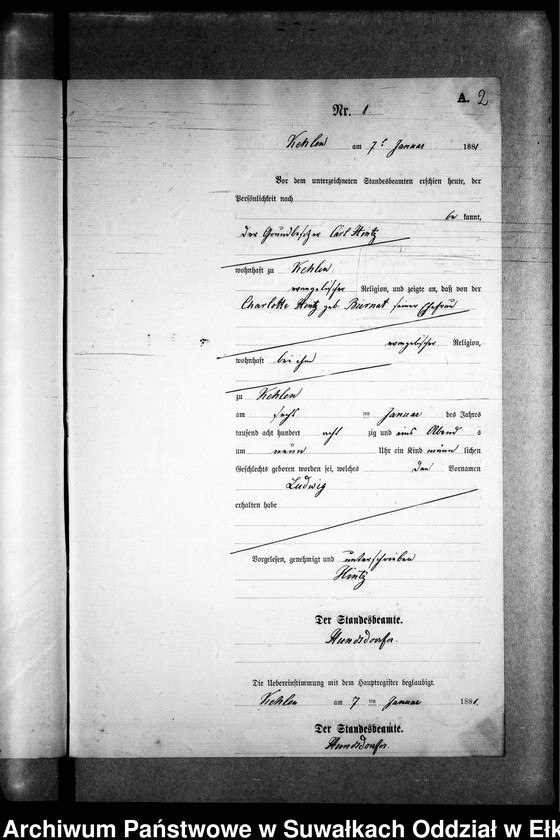 A. 2
Nr. 1
Kehlen am 7t Januar 1881.
Vor dem unterzeichneten Standesbeamten erschien heute, der
Persönlichkeit nach
be kannt,
der Grundbesitzer Carl Hintz
wohnhaft zu Kehlen
evangelischer Religion, und zeigte an, daß von der
Charlotte Hintz geb. Burnat seiner Ehefrau
evangelischer Religion,
wohnhaft bei ihm
zu Kehlen
am sechs ten Januar des Jahres
tausend acht hundert acht zig und eins Abend s
um neun Uhr ein Kind männ lichen
Geschlechts geboren worden sei, welches den Vornamen
Ludwig
erhalten habe
Vorgelesen, genehmigt und unterschrieben
Hintz
Der Standesbeamte.
Hundsdorfer.
Die Uebereinstimmung mit dem Hauptregister beglaubigt.
Kehlen am 7 ten Januar 1881.
Der Standesbeamte.
Hundsdorfer.
Archiwum Państwowe w Suwałkach Oddział w Ełk